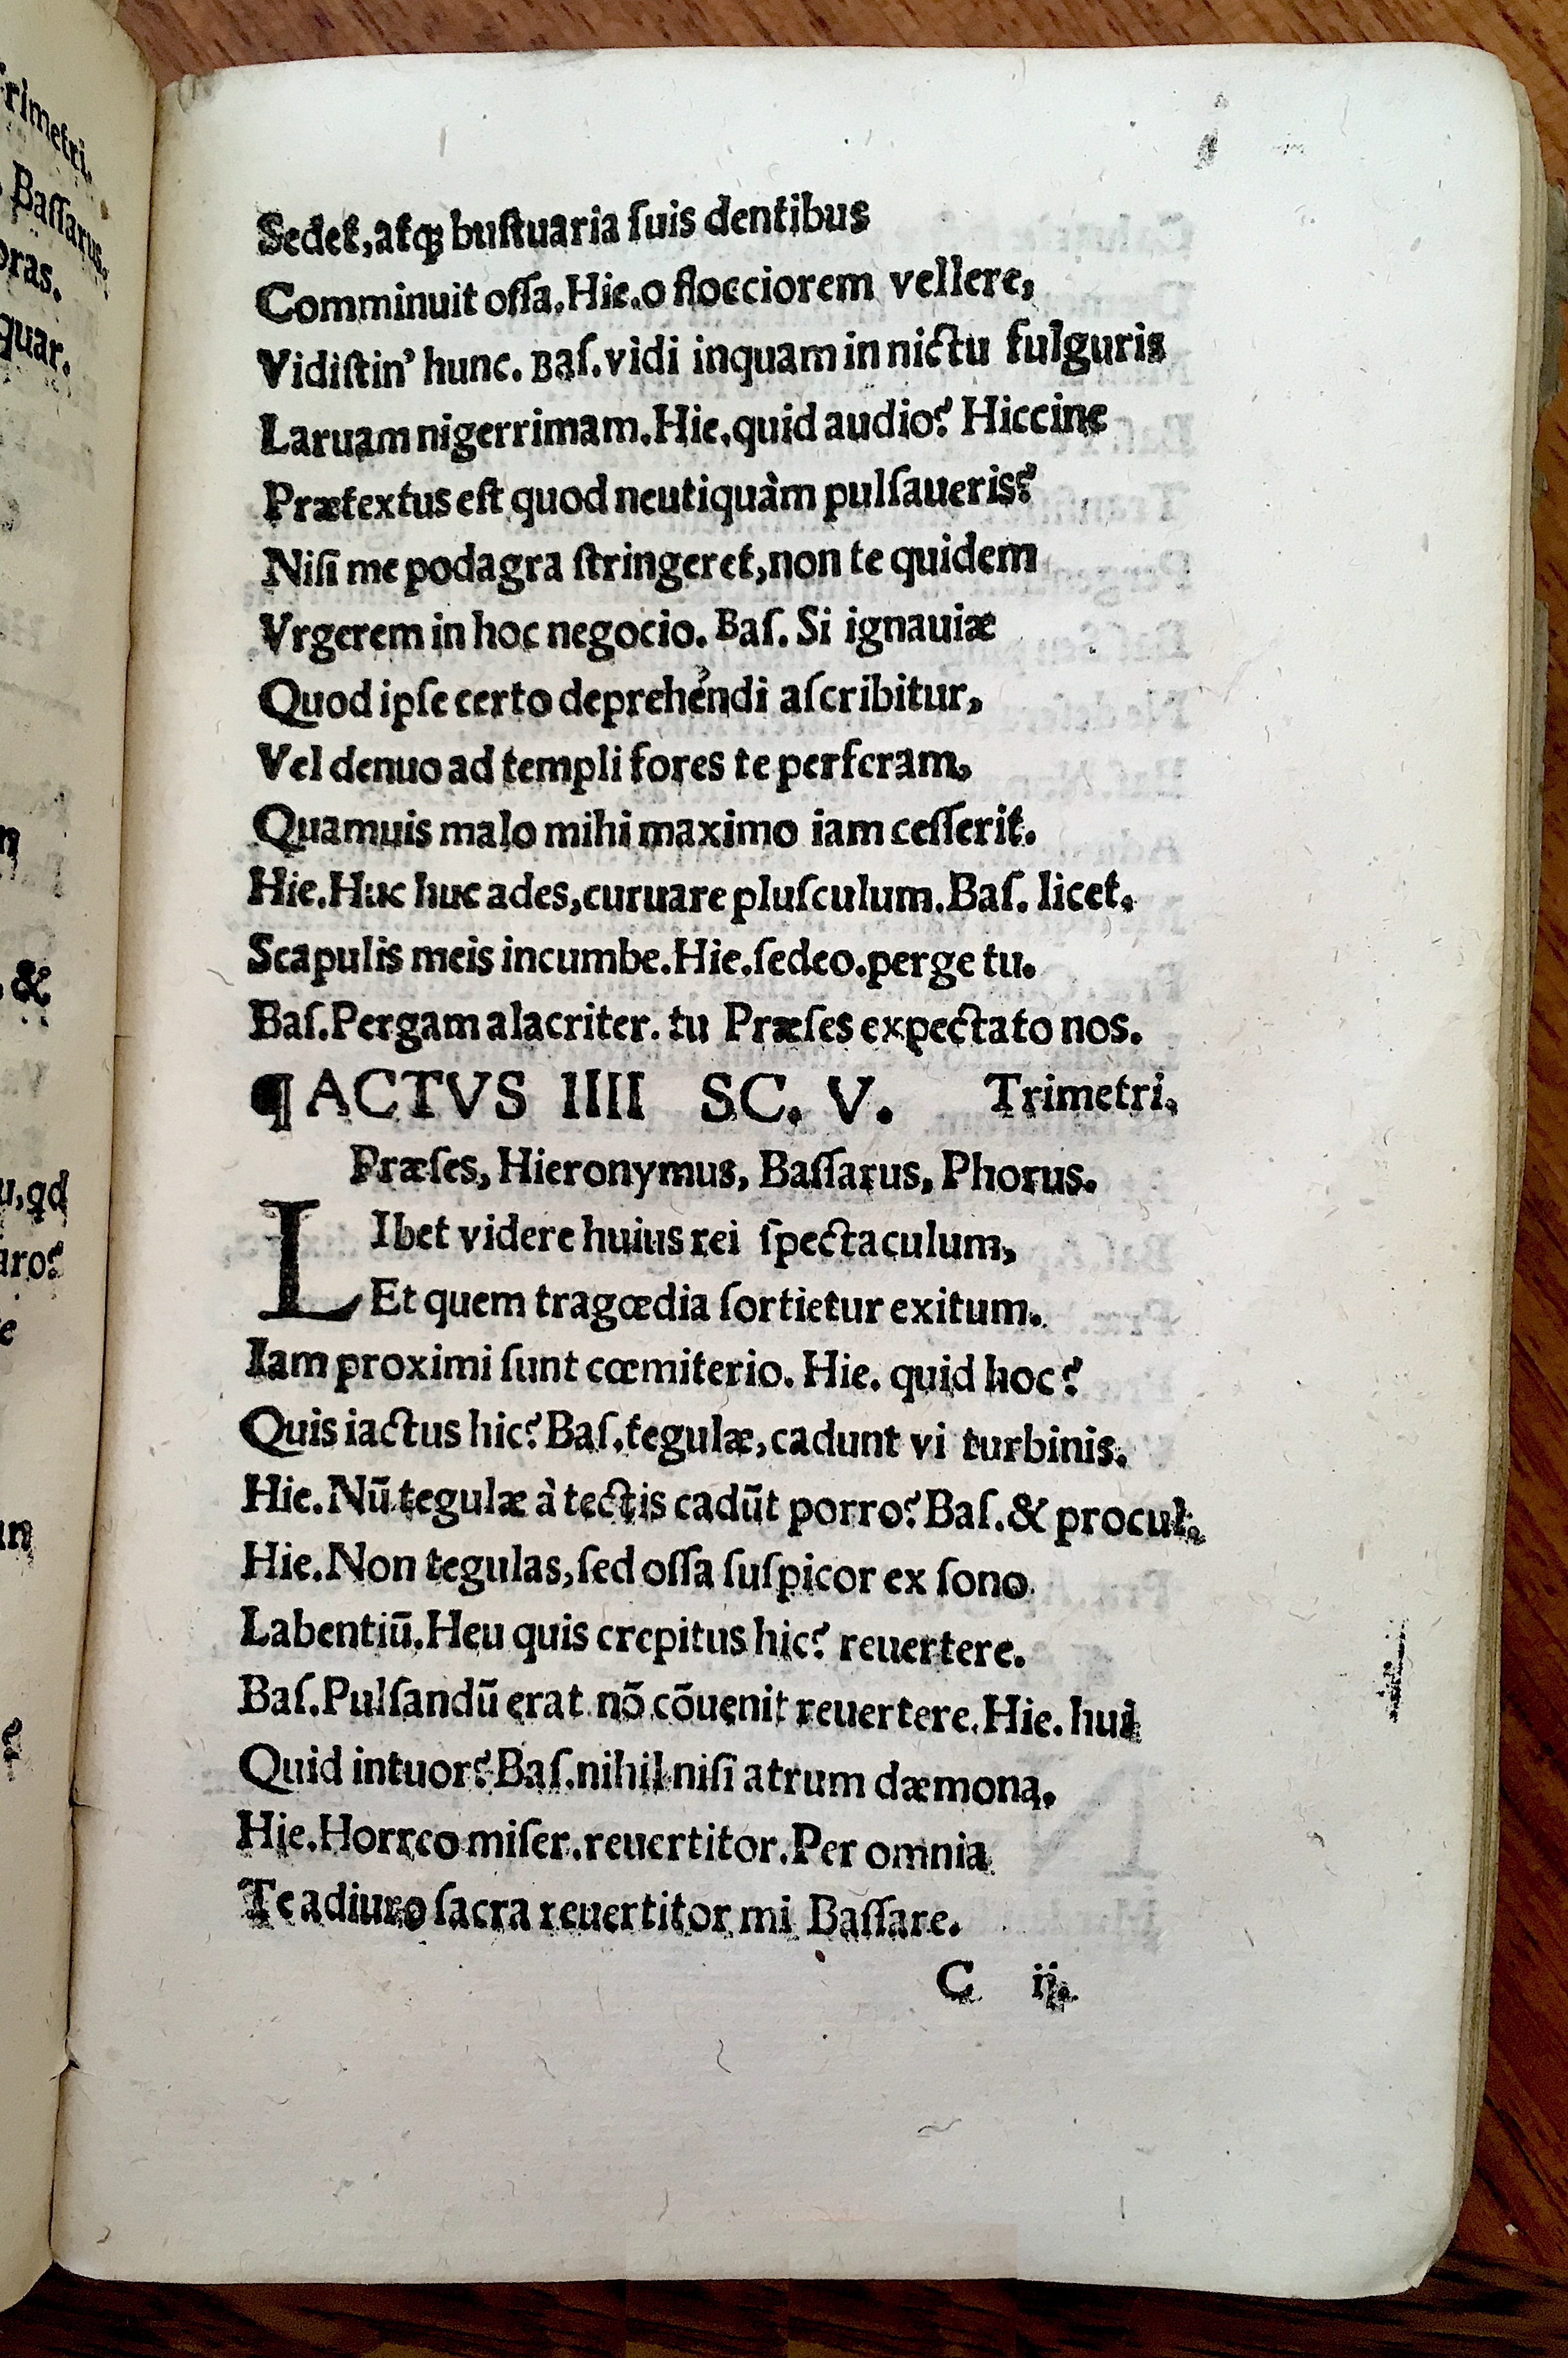 Sedet, atqꝫ bustuaria ſuis dentibus
Comminuit oſſa. Hie. o flocciorem vellere,
Vidiſtin' hunc. Baſ. vidi inquam in nictu fulguris
Laruam nigerrimam. Hie. quid audio? Hiccine
Prætextus eſt quod neutiquàm pulſaueris?
Niſi me podagra ſtringeret, non te quidem
Vrgerem in hoc negocio. Baſ. Si ignauiæ
Quod ipſe certo deprehéndi aſcribitur,
Vel denuo ad templi fores te perferam,
Quamuis malo mihi maximo iam ceſſerit.
Hie. Huc huc ades, curuare pluſculum. Baſ. licet.
Scapulis meis incumbe. Hie. ſedeo. perge tu.
Baſ. Pergam alacriter. tu Præſes expectato nos.
¶ ACTVS IIII SC. V. Trimetri.
Præſes, Hieronymus, Baſſarus, Phorus.
LIbet videre huius rei ſpectaculum,
Et quem tragœdia ſortietur exitum.
Iam proximi ſunt cœmiterio. Hie. quid hoc?
Quis iactus hic? Baſ. tegulæ, cadunt vi turbinis.
Hie. Nū tegulæ à tectis cadūt porro? Baſ. & procul.
Hie. Non tegulas, ſed oſſa ſuſpicor ex ſono
Labentiū. Heu quis crepitus hic? reuertere.
Baſ. Pulſandū erat nō cōuenit reuertere. Hie. hui
Quid intuor? Baſ. nihil niſi atrum dæmona.
Hie. Horreo miſer. reuertitor. Per omnia
Te adiuro ſacra reuertitor mi Baſſare.
C ij.